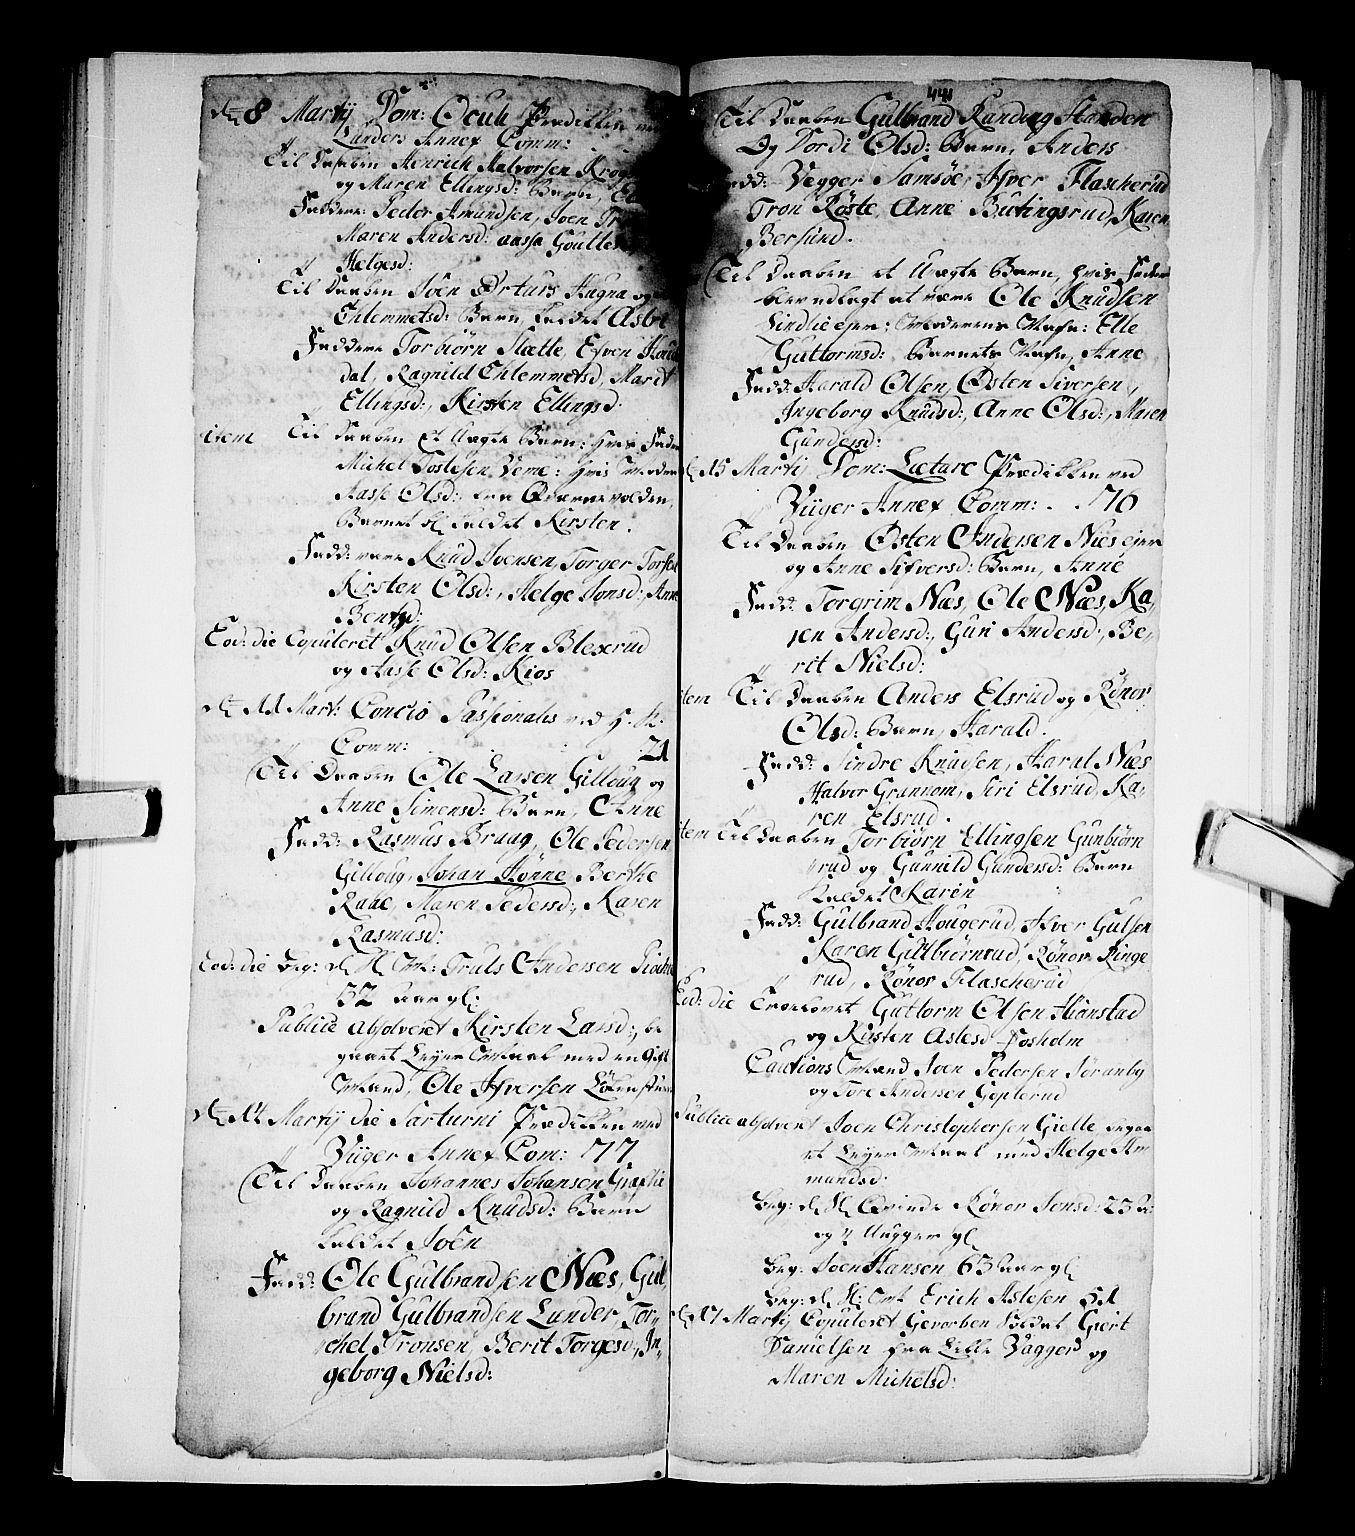 d 8 Martij Dom: Oculi Prædikken ved
Lunders Annex Comm:
Til Daaben Henrich Halvorsen
og Maren Ellingsd: Barn,
Faddere: Peder Amundsen, Joen
Maren Andersd: aasse
Helgesd:
Til Daaben Joen Arturs Haugna og
Ehlemmetsd: Barn, kaldet
Faddere Torbiörn Slette, Efven
dal, Ragnild Ehlemmetsd, Marit
Ellingsd:, Kirsten Ellingsd.
item Til Daaben Et Uægte Barn: hvis Fader
Michel Tostesen Veme: hvis Moder
Aasse Olsd: fra Qværnevolden,
Barnet bl kaldet Kirsten.
Fadd: vare Knud Joensen, Torger
Kirsten Olsd:, Helge Jonsd:, Anne
Bentsd:
Eod: die Copuleret Knud Olsen Blexerud
og Aasse Olsd: Kios
d 11 Mart: Concio Passionalis ved H. K.
Comm: 21
Til Daaben Ole Larsen Gilloug og
Anne Simensd: Barn, Anne
Fadd: Rasmus Braag, Ole Pedersen
Gilloug, Johan Hönne, Berthe
Raae, Maren Pedersd:, Karen
Rasmusd:
Eod: die beg: d Sl Md: Truls Andersen
52 aar gl:
Publice absolveret Kirsten Larsd:, be
gaaet Leyer Maal med en Gift
Mand, Ole Iversen
d 14 Martij die Sarturni Prædikken ved
Viiger Annex Com: 77
Til Daaben Johannes Johansen
og Ragnild Knudsd: Barn
kaldet Joen
Fadd: Ole Gulbrandsen Næs, Gul,
brand Gulbrandsen Lunder, Tor,
chel Tronsen, Berit Torgesd:, In,
geborg Nielsd:
441
Til Daaben Gulbrand
Og Tordi Olsd: Barn, Anders
Fadd: Vegger Samsöe, Iver Flascherud
Tron Röste, Anne Butingsrud, Karen
Bersund.
Til Daaben et Uægte Barn, hvis Fader
blev udlagt at være Ole Knudsen
Lindlie ejer: Moderens Nafn: Elle
Guttormsd: Barnets Nafn, Anne
Fadd: Harald Olsen, Östen Siversen,
Ingeborg Knudsd:, Anne Olsd:, Maren
Gundersd:
d 15 Martij Dom: Lætare Prædikken ved
Viiger Annex Comm: . 76
Til Daaben Östen Andersen Næs ejer
og Anne Sifversd: Barn, Anne
Fadd: Torgrim Næs, Ole Næs, Ka,
ren Andersd:, Guri Andersd:, Be,
rit Nielsd:
item Til Daaben Anders Elsrud og Rönor
Olsd: Barn, Harald.
Fadd: Sindre Knudsen, Haral Næs
Halvor Granum, Siri Elsrud, Ka,
ren Elsrud.
item Til Daaben Torbiörn Ellingsen Gunbiörn
rud og Gunnild Gundersd: Barn
kaldet Karen
Fadd: Gulbrand Hougerud, Iver Gulsen
Karen Gulbiörnrud, Rönor Ringe
rud, Rönor Flascherud
Eod: die Troelovet Guttorm Olsen Hönstad
og Kirsten Aslesd Fosholm
Cautions Mænd Joen Pedersen Söranby
og Tore Andersen Goplerud
Publice absolveret Joen Christophersen Gielle, begaa
et Leyer Maal med Helge Am
mundsd:
beg: d Sl Qvinde Rönor Jonsd: 23 A:
og 4 Uuger gl
beg: Joen Hansen 63 aar gl
beg: d Sl: Md Erich Aslesen 51
d 17 Martij Copuleret Gevorben Soldat Giert
Danielsen fra Lille Vagger og
Maren Michelsd: